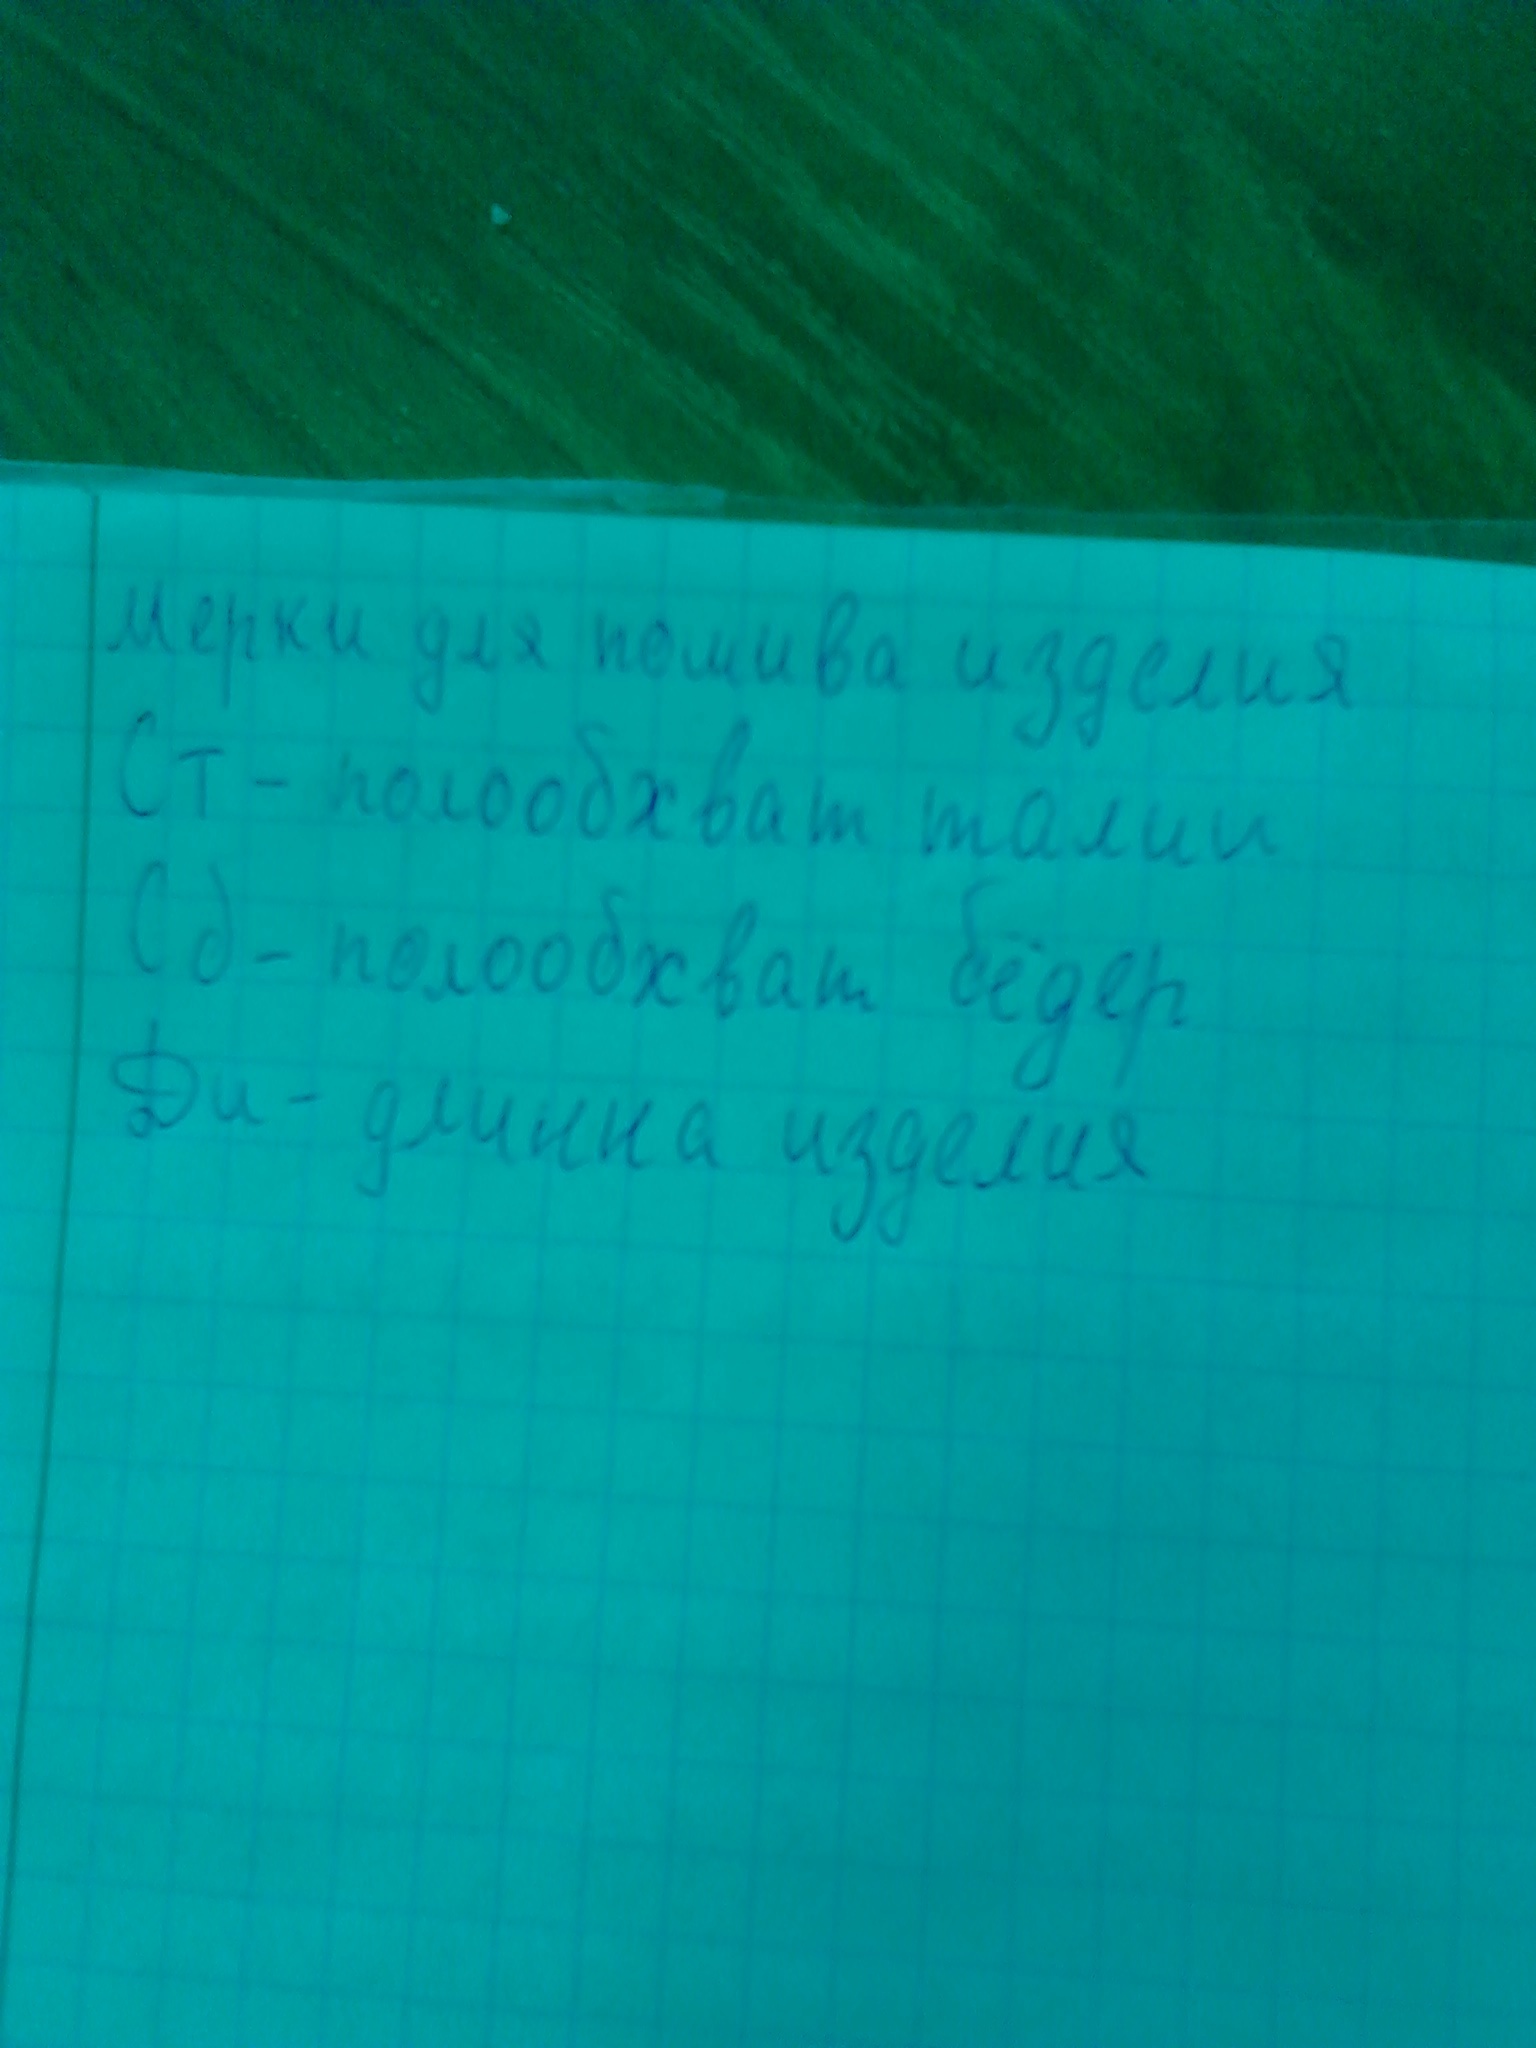 Мерки для пошива изделия
Ст - полообхват талии
Сб - полообхват бёдер
Ди - длинна изделия